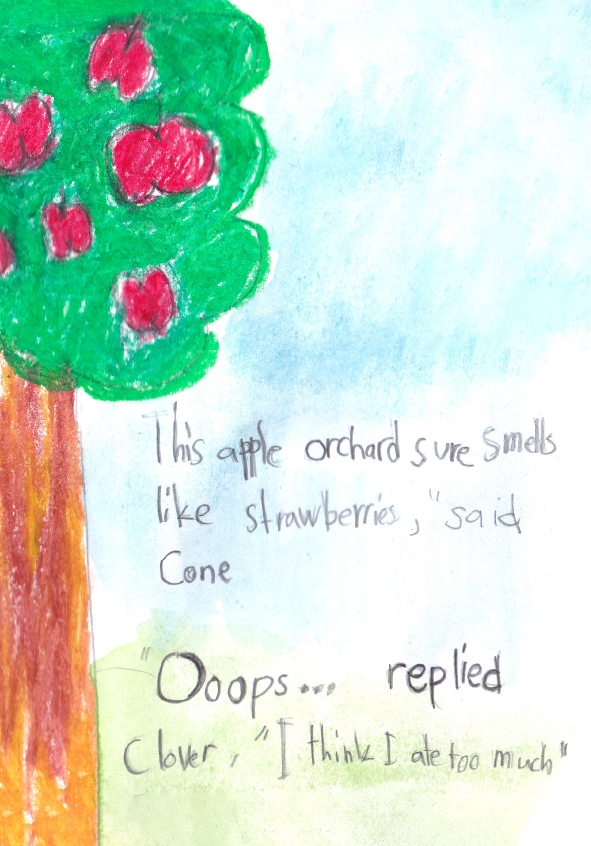 This apple orchard sure smells
like strawberries," said
Cone
"Ooops... replied
Clover, "I think I ate too much"